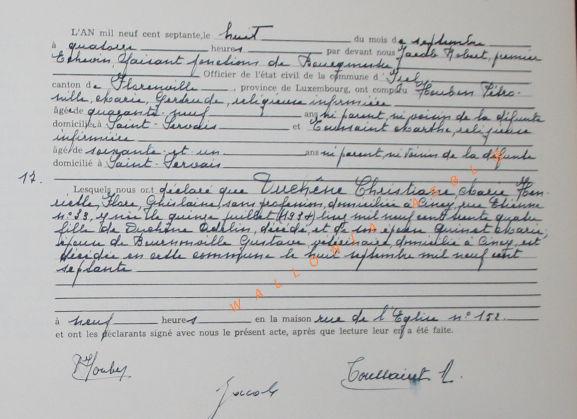 L'AN mil neuf cent septante, le huit du mois de septembre
à quatorze heures par devant nous Jacob Robert, premier
Echevin, faisant fonctions de Bourgmestre
Officier de l'état civil de la commune d'
canton de Florenville, province de Luxembourg, ont comparu Houbon Pétro-
nille, Marie, Gertrude, religieuse infirmière
âgée de quarante-neuf ans ni parent, ni voisin de la défunte
domiciliée à Saint-Servais et Toussaint Marthe, religieuse
infirmière
âgé de soixante et un ans ni parent, ni voisin de la défunte
domicilié à Saint-Servais
17. Lesquels nous ont déclaré que Duchêne Christiane, Marie, Hen-
riette, Flore, Ghislaine, sans profession, domiciliée à Ciney, rue
n° 33, y née le quinze juillet (1934) mil neuf cent trente quatre
fille de Duchêne Odilon, décédé, et de son épouse Quinet Marie,
épouse de Bournonville Gustave, domicilié à Ciney, est
décédée en cette commune le huit septembre mil neuf cent
septante
à neuf heures en la maison rue de l'Eglise n° 152
et ont les déclarants signé avec nous le présent acte, après que lecture leur en a été faite.
Jacob
Toussaint M.
WALLONIA